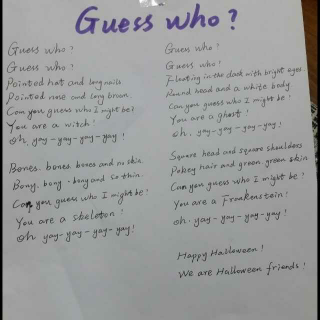 Guess who?
Guess who?
Guess who?
Pointed hat and long nails
Pointed nose and long broom
Can you guess who I might be?
You are a witch!
Oh, yay-yay-yay-yay!
Bones, bones bones and no skin
Bony, bony-bony and so thin.
Can you guess who I might be!
You are a skeleton!
Oh yay-yay-yay-yay!
Guess who!
Guess who!
Floating in the dark with bright eyes
Round head and a white body
Can you guess who I might be!
You are a ghost!
Oh, yay-yay-yay-yay!
Square head and square shoulders
Pokey hair and green, green skin
Can you guess who I might be!
You are a Frankenstein!
Oh, yay-yay-yay-yay!
Happy Halloween!
We are Halloween friends!